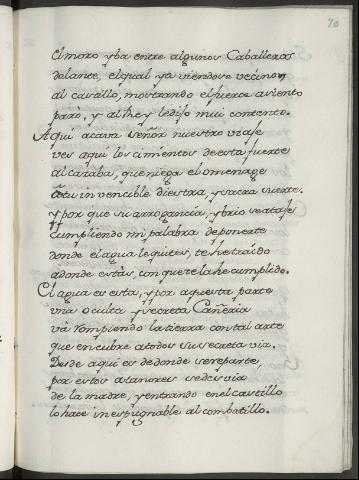 70
El moro yba entre algunos Caballeros
delante, el qual ya viendose vecino
al castillo, mostrando el fuerte asiento
parò, y al Rey le dijo mui contento.
Aqui acava señor nuestro viaje
ves aqui los cimientos de esta fuerte
alcazaba, que niega el omenage
à tu invencible diestra, y sacra suerte.
Y por que su arrogancia, y brio se ataje
cumpliendo mi palabra de ponerte
donde el agua le quites, te he traido
adonde estàs, con que te la he cumplido.
El agua es esta, y por aquesta parte
una oculta y secreta Cañeria
và rompiendo la tierra con tal arte
que encubre a todos su secreta via.
Desde aqui es de donde se reparte,
por estos atanores se desvia
de la madre, y entrando en el castillo
lo hace inespugnable al combatillo.